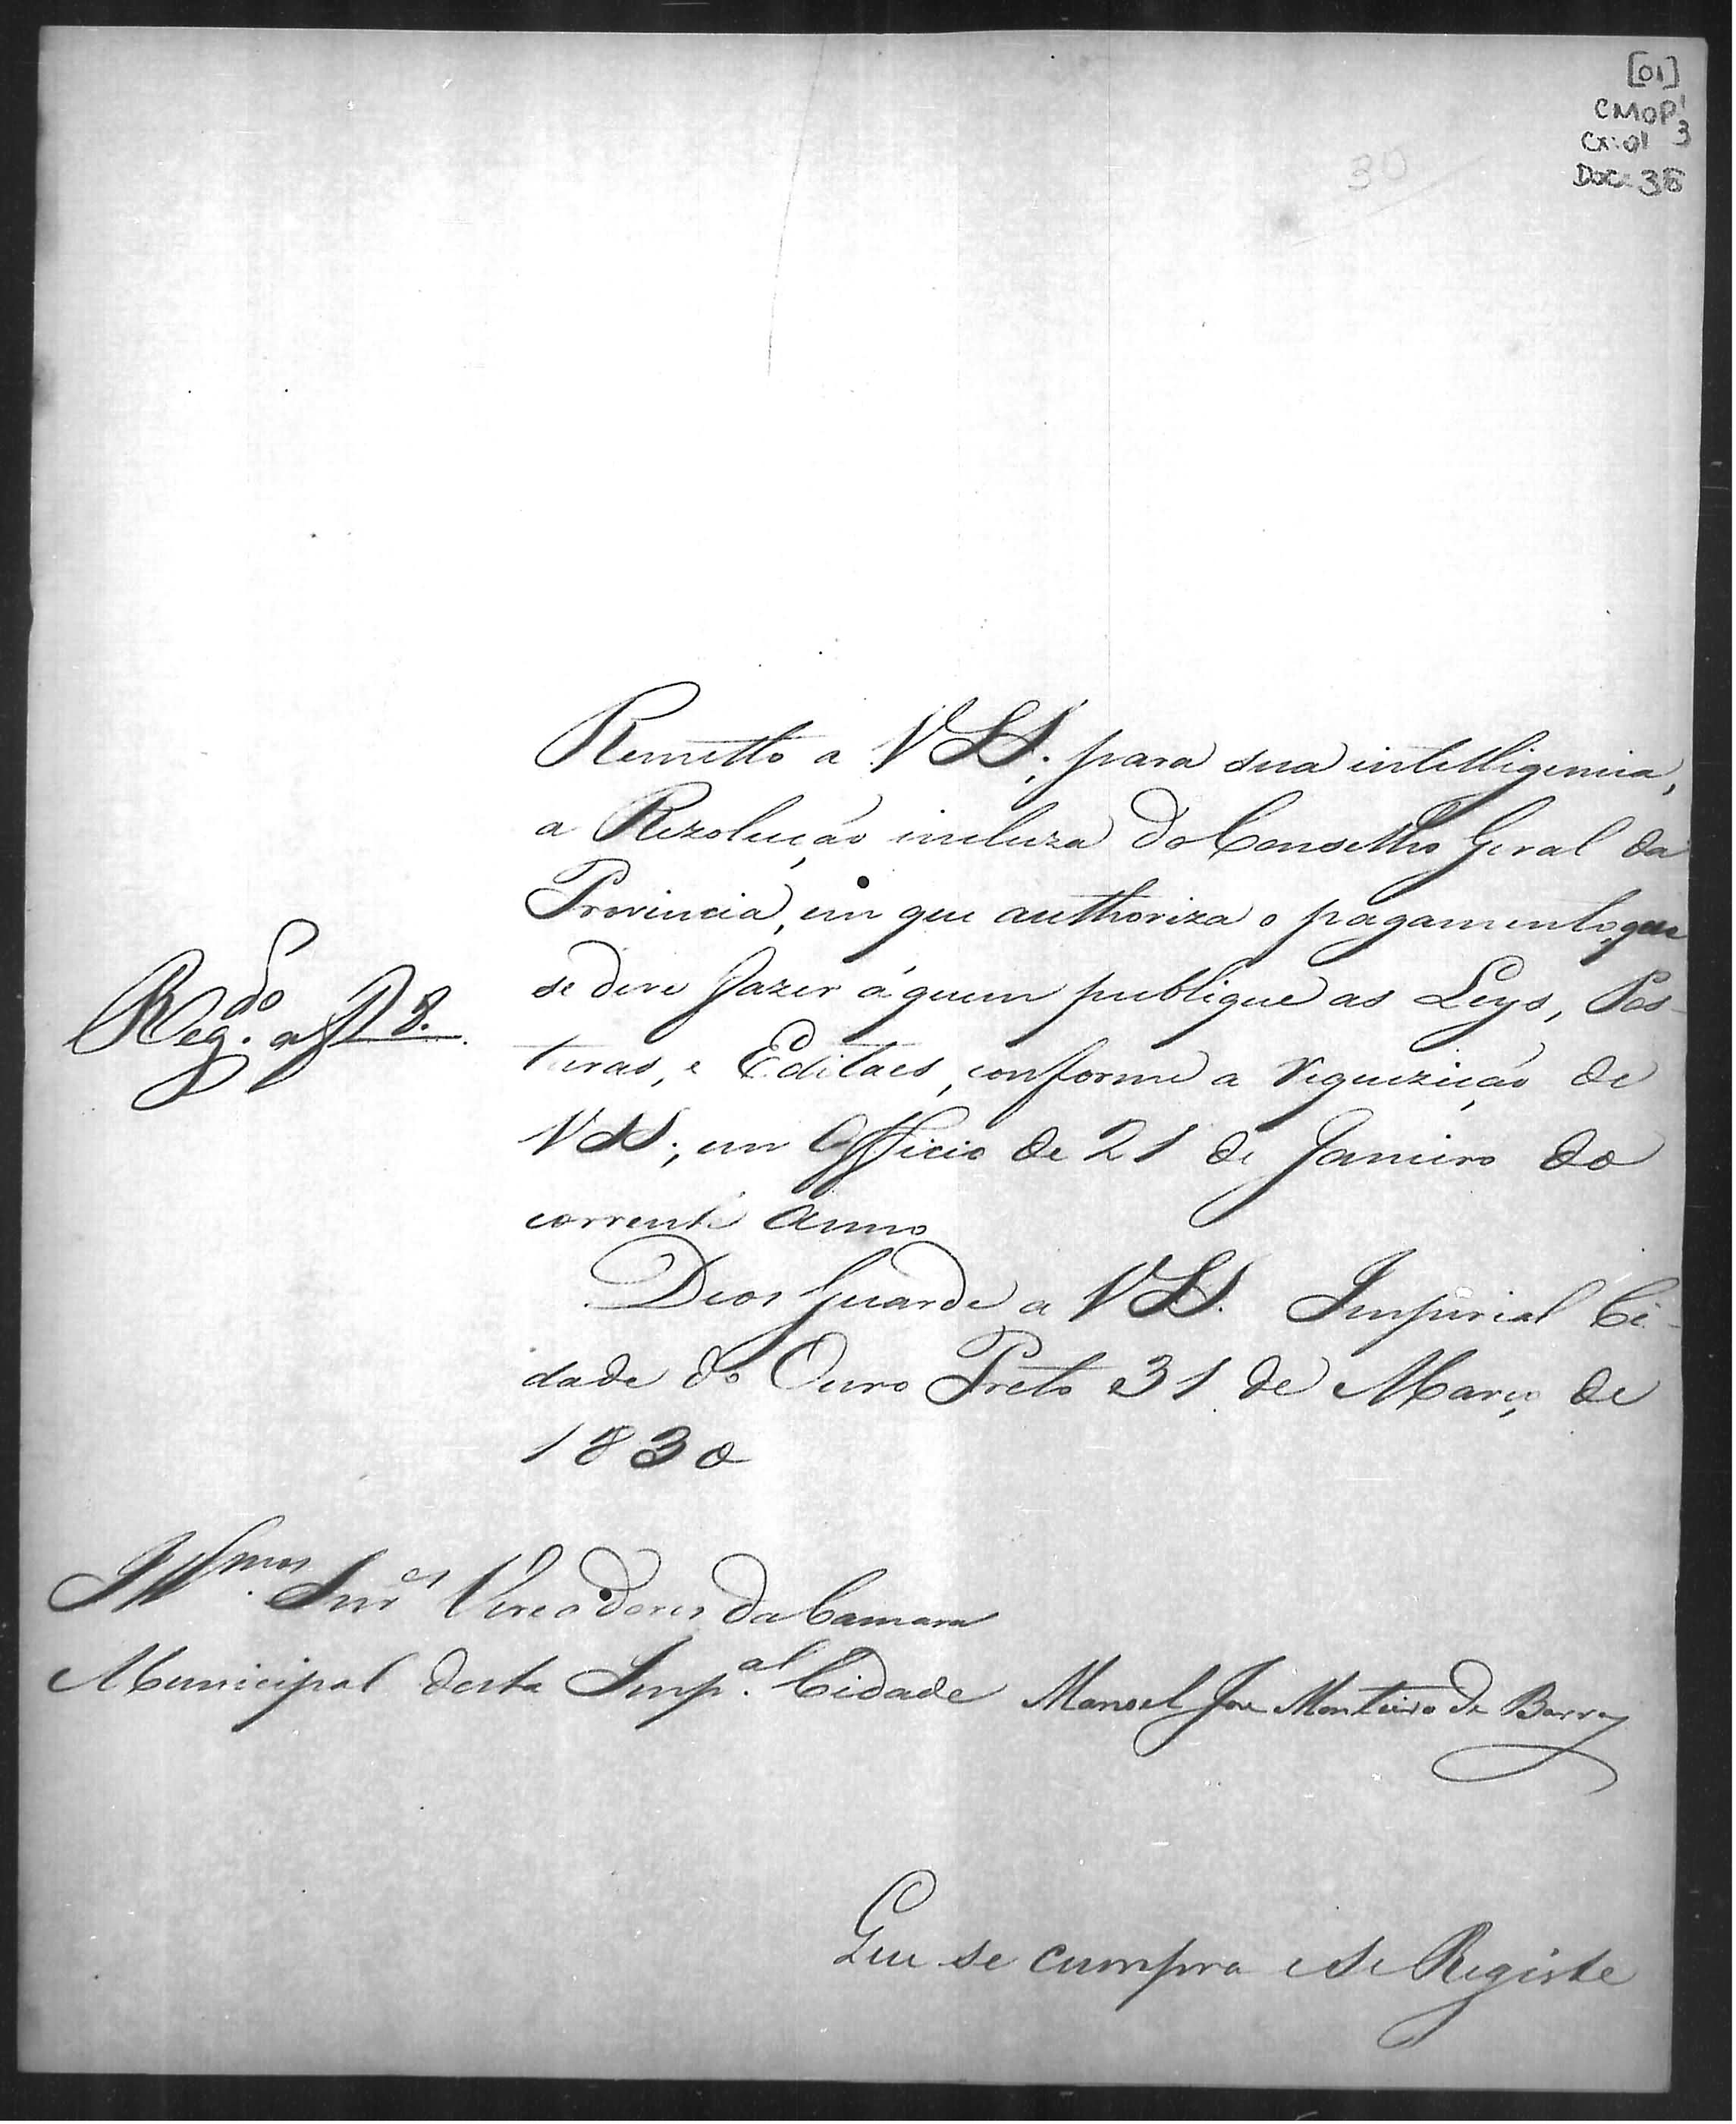 [01]
CMOP 1
Cx: 01 3
Doc: 38
30
Remetto a VSS. para sua intelligencia,
a Rezolução incluza do Conselho Geral da
Provincia, em que authoriza o pagamento, que
se deve fazer á quem publique as Leys, Pos-
turas, e Editaes, conforme a requezição de
VSS; em Officio de 21 de Janeiro do
corrente Anno
Reg.do a f 8.
Deos Guarde a VSS. Imperial Ci-
dade do Ouro Preto 31 de Março de
1830
Illmos. Snres Vereadores da Camara
Municipal desta Imp.al Cidade Manoel Joze Monteiro de Barros
Que se cumpra e Se Registe